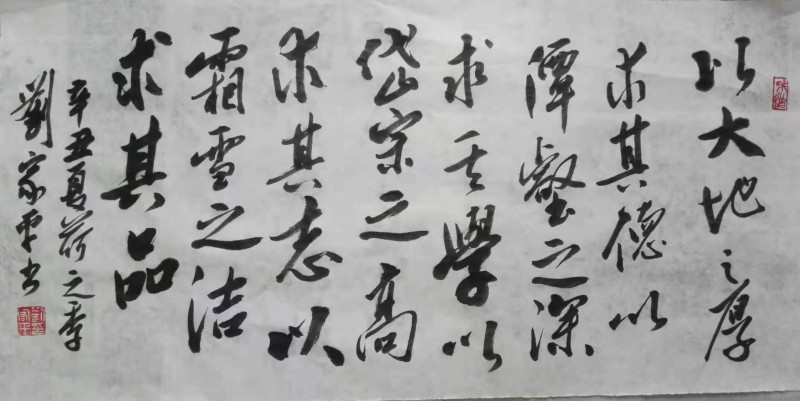 以大地之厚
求其德以
潭壑之深
求其學以
岱宗之高
求其志以
霜雪之洁
求其品
辛丑夏荷之季
劉家